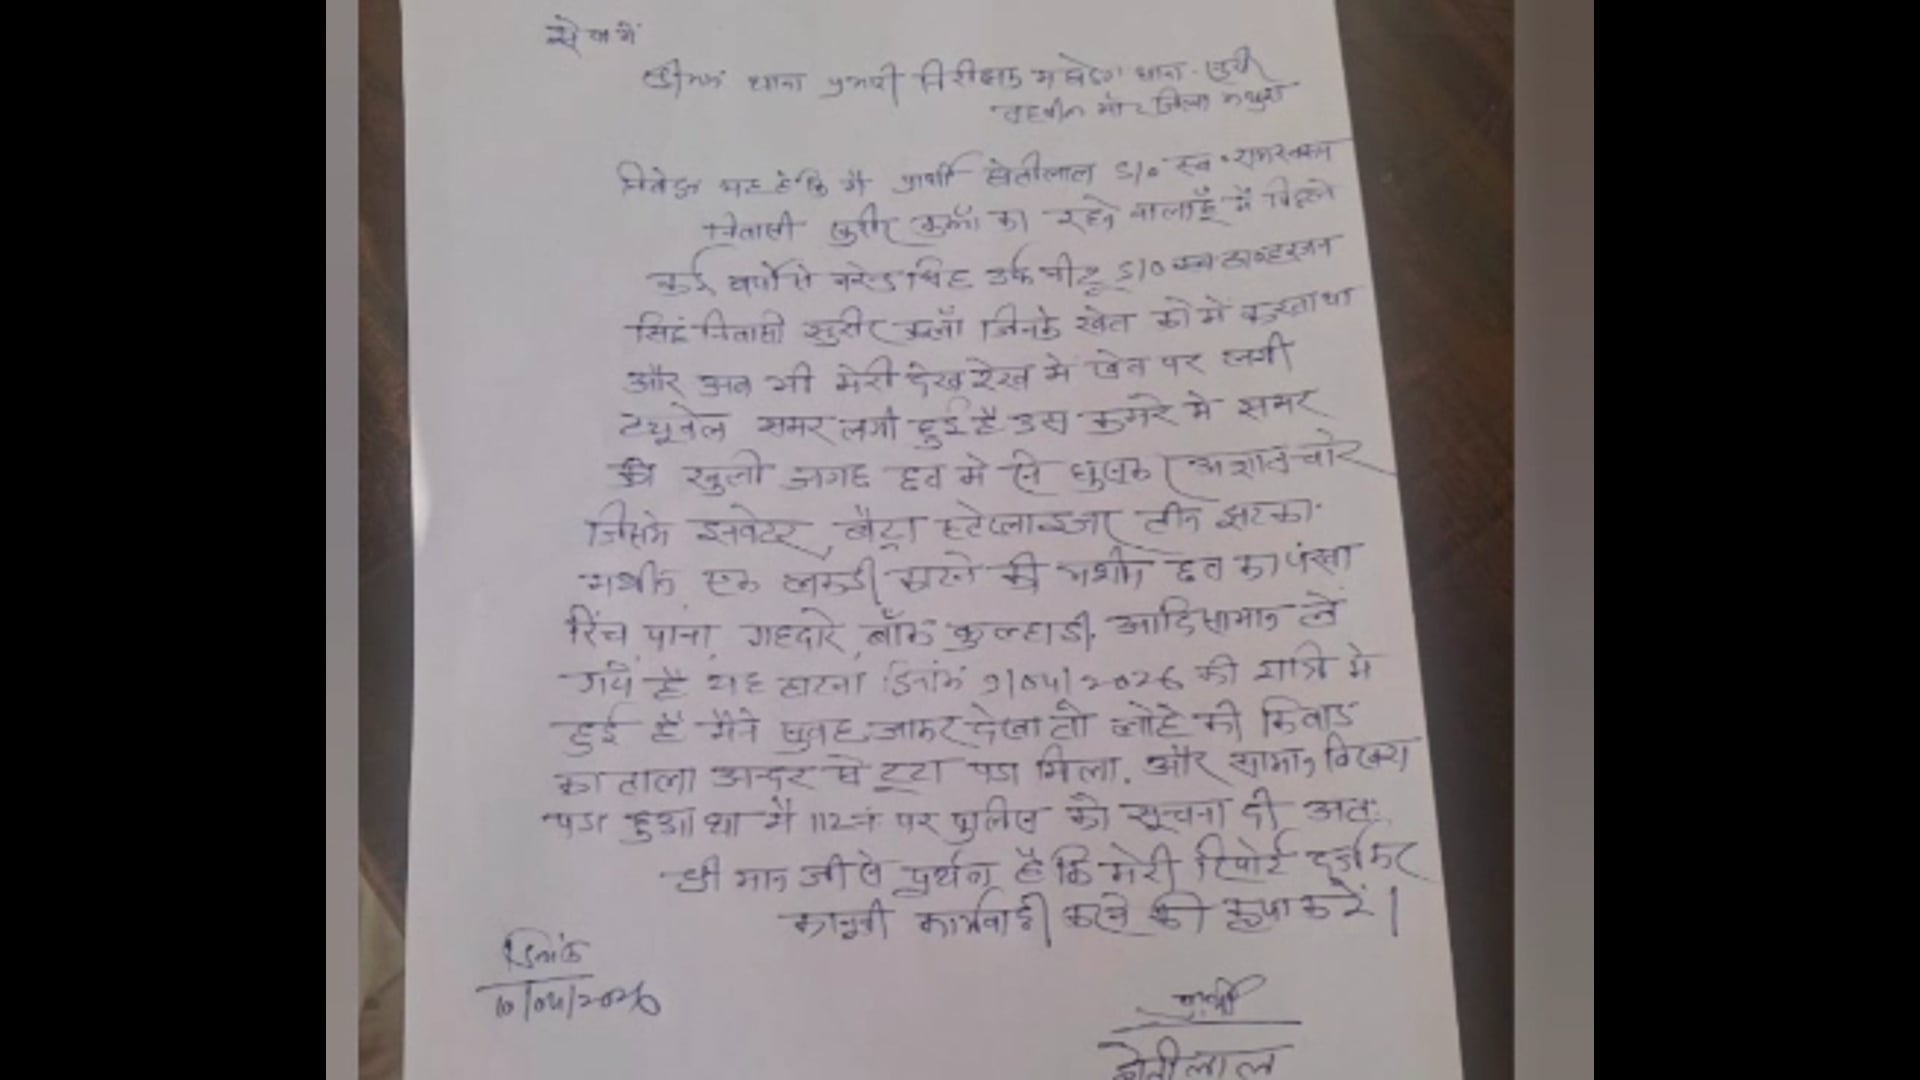 सेवा में
श्रीमान थाना प्रभारी निरीक्षक महोदय थाना सुरीर
तहसील मांट जिला मथुरा
निवेदन यह है कि मैं प्रार्थी खेतीलाल S/o स्व०
निवासी सुरीर कलाँ का रहने वाला हूँ मैं पिछले
कई वर्षो से नरेन्द्र सिंह उर्फ S/O स्व०
सिंह निवासी सुरीर कलाँ जिनके खेत को में करता था
और अब भी मेरी देख रेख मे खेत पर लगी
टयूबेल समर लगी हुई है उस कमरे मे समर
की खुली जगह छत मे से घुसकर अज्ञात चोर
जिसमे इनवेटर, बैट्रा स्टेप्लाइजर तीन झटका
मशीन एक लकडी काटने की मशीन छत का पंखा
रिंच पाना, बाँक कुल्हाडी, आदि सामान ले
गये है यह घटना दिनांक 9/04/2026 की रात्रि मे
हुई है मैने सुबह जाकर देखा तो लोहे की किवाड
का ताला अन्दर से टूटा पडा मिला. और सामान विखरा
पडा हुआ था मै 112 नं. पर पुलिस को सूचना दी अतः
श्री मान जी से प्रर्थना है कि मेरी रिपोर्ट दर्ज कर
कानूनी कार्यवाही करने की कृपा करें।
दिनांक
10/04/2026
प्रार्थी
खेतीलाल